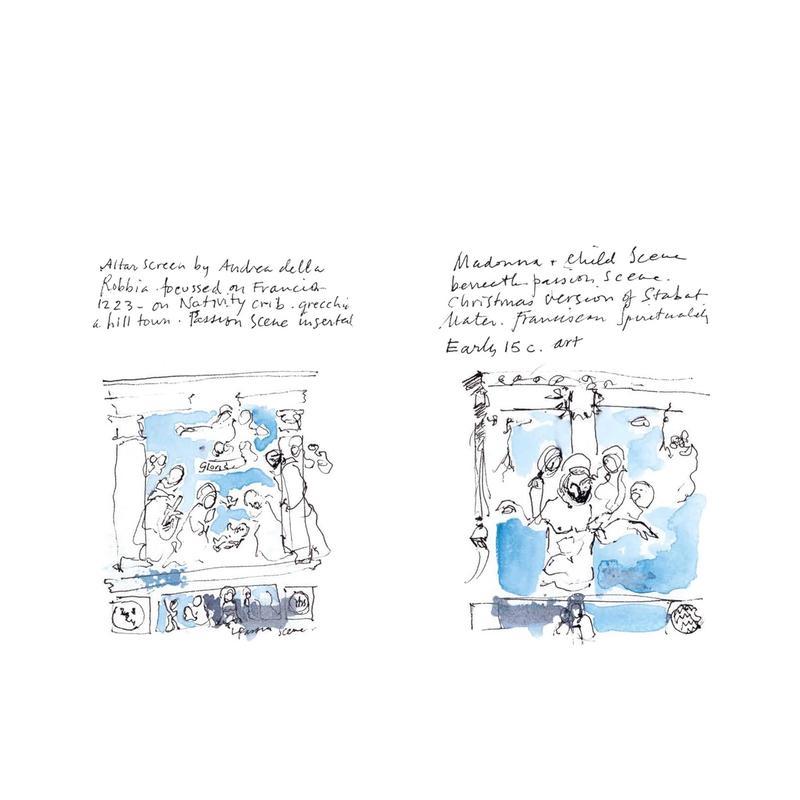 Altar screen by Andrea della
Robbia. focussed on Francis
1223 - on Nativity crib. grecchi
a hill town. Passion Scene inserted
Madonna + child Scene
beneath passion scene.
Christmas version of Stabat
Mater. Franciscan Spirituality
Early 15 c. art
Gloria
ihs
Passion scene.